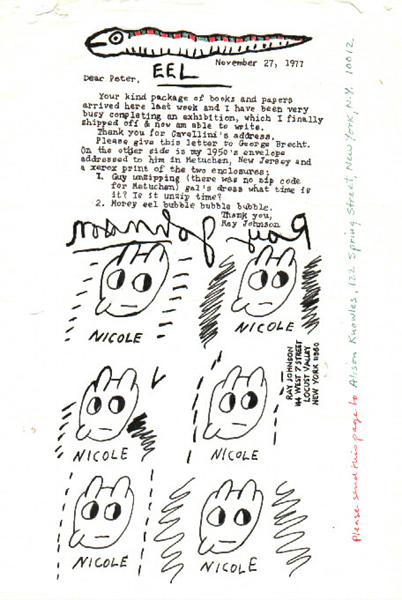 November 27, 1977
Dear Peter,
EEL
Your kind package of books and papers
arrived here last week and I have been very
busy completing an exhibition, which I finally
shipped off & now am able to write.
Thank you for Cavellini's address.
Please give this letter to George Brecht.
On the other side is my 1950's envelope
addressed to him in Metuchen, New Jersey and
a xerox print of the two enclosures;
1. Guy unzipping (there was no zip code
for Metuchen) gal's dress what time is
it? Is it unzip time?
2. Morey eel bubble bubble bubble.
Thank you,
Ray Johnson
NICOLE
NICOLE
RAY JOHNSON
44 WEST 7 STREET
LOCUST VALLEY
NEW YORK 11560
NICOLE
NICOLE
NICOLE
NICOLE
Please send this page to Alison Knowles, 122 Spring Street, New York, N.Y. 10012